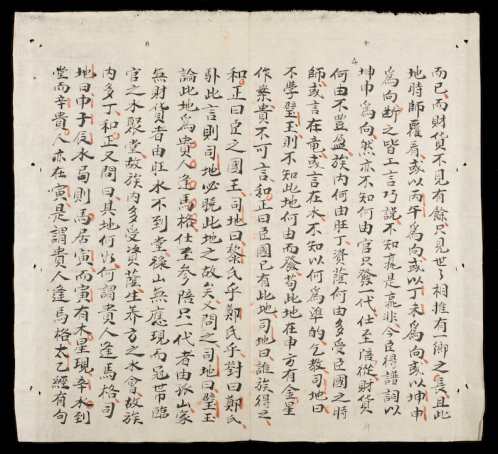 而已而財貨不見有餘只見世〻相推有一鄉之長且此
地時師覆尋或以丙午爲向或以丁未爲向或以坤申
爲向断之皆工言巧說不知孰是孰非今臣得譜詞以
坤申爲向然亦不知何由官只發一代仕至陪從財貨
何由不豊盈族内何由旺丁資蔭何由多受臣國之時
師或言在竜或言在水不知以何爲準的乞教司地曰
不學璧玉則不知此地何由而發若此地在申方有金星
作案貴不可言和正曰臣國已有此地司地曰誰族得之
和正曰臣之國王司地曰黎氏乎鄭氏乎對曰鄭氏
此言則司地必曉此地之故矣人問之司地曰璧玉
論此地爲貴人逢馬格仕至參陪只一代者由孤山家
無財貨者由旺水不到堂祿山無應現而冠带臨
官之水聚堂故族内多受資蔭生养方之水會故族
内多丁和正又問曰其地何謂貴人逢馬格司
地曰申子辰水局則馬居寅而寅有木星現辛水到
堂而辛貴人亦在寅是謂貴人逢馬格太乙經有句